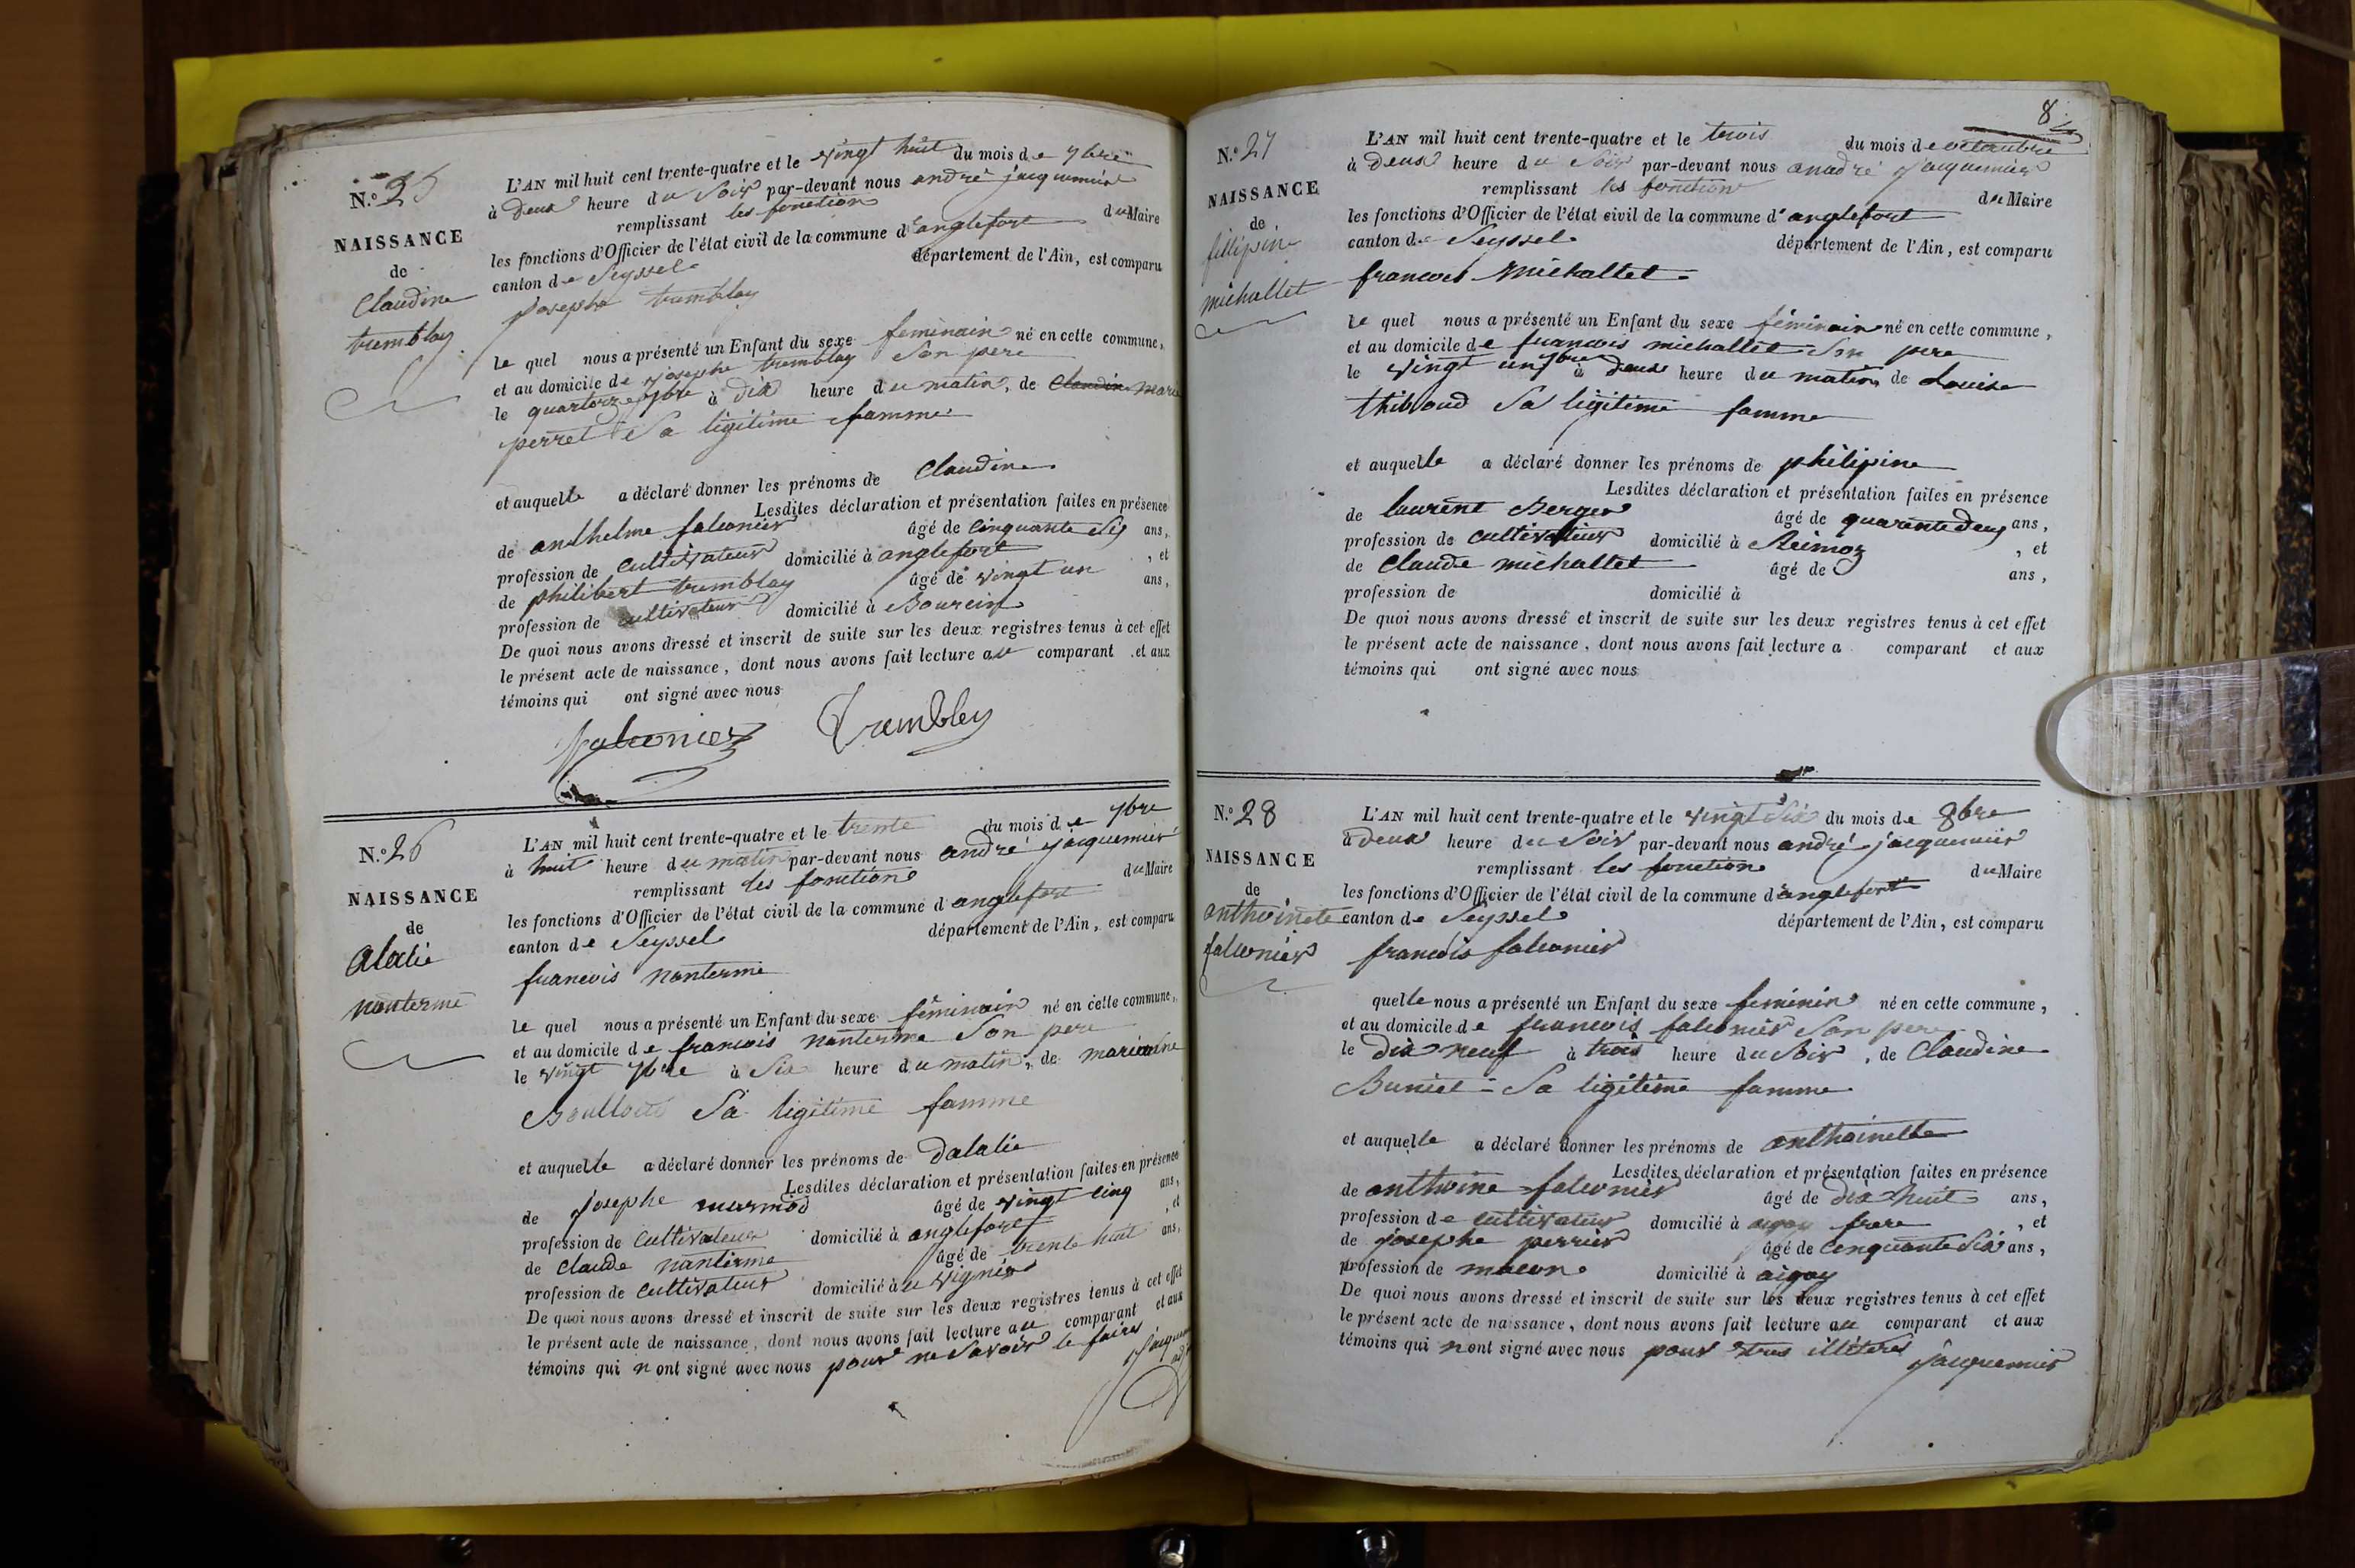 N.º 25
NAISSANCE
de
Claudine
tremblay
L'AN mil huit cent trente-quatre et le vingt huit du mois de 7bre
à deux heure du Soir par-devant nous andré jacquemier
remplissant les fonction du Maire
les fonctions d'Officier de l'état civil de la commune d'anglefort
canton de Seyssel département de l'Ain, est comparu
josephe tremblay
le quel nous a présenté un Enfant du sexe feminain né en cette commune,
et au domicile de josephe tremblay Son pere
le quartorze 7bre à dix heure du matin, de Claudine marie
perret Sa ligitime famme
et auquelle a déclaré donner les prénoms de Claudine
Lesdites déclaration et présentation faites en présence
de anthelme falconier âgé de Cinquante Six ans,
profession de Cultivateur domicilié à anglefort , et
de philibert tremblay âgé de vingt un ans,
profession de cultivateur domicilié à
De quoi nous avons dressé et inscrit de suite sur les deux registres tenus à cet effet
le présent acte de naissance, dont nous avons fait lecture au comparant et aux
témoins qui ont signé avec nous
falconier Trembley
N.º 26
NAISSANCE
de
alalie
nanterme
L'AN mil huit cent trente-quatre et le trente du mois de 7bre
à huit heure du matin par-devant nous andré jacquemier
remplissant les fonction du Maire
les fonctions d'Officier de l'état civil de la commune d'anglefort
canton de Seyssel département de l'Ain, est comparu
francois nanterme
le quel nous a présenté un Enfant du sexe féminain né en cette commune,
et au domicile de francois nanterme Son pere
le vingt 7bre à Six heure du matin, de
Sa ligitime famme
et auquelle a déclaré donner les prénoms de Dalalie
Lesdites déclaration et présentation faites en présence
de josephe murmod âgé de vingt cinq ans,
profession de Cultivateur domicilié à anglefort , et
de Claude nanterme âgé de trente huit ans,
profession de Cultivateur domicilié à
De quoi nous avons dressé et inscrit de suite sur les deux registres tenus à cet effet
le présent acte de naissance, dont nous avons fait lecture au comparant et aux
témoins qui n ont signé avec nous pour ne Savoir le faire
8
N.º 27
NAISSANCE
de
fillipine
michallet
L'AN mil huit cent trente-quatre et le trois du mois de octoubre
à deux heure du Soir par-devant nous anudré jacquemier
remplissant les fonction du Maire
les fonctions d'Officier de l'état civil de la commune d'anglefort
canton de Seyssel département de l'Ain, est comparu
francois Michallet
le quel nous a présenté un Enfant du sexe féminain né en cette commune,
et au domicile de francois michallet Son pere
le vingt un 7bre à deux heure du matin, de Louise
thiboud Sa ligitime famme
et auquelle a déclaré donner les prénoms de philipine
Lesdites déclaration et présentation faites en présence
de laurent Berger âgé de quarente deux ans,
profession de cultivateur domicilié à , et
de Claude michallet âgé de ans,
profession de domicilié à
De quoi nous avons dressé et inscrit de suite sur les deux registres tenus à cet effet
le présent acte de naissance, dont nous avons fait lecture a comparant et aux
témoins qui ont signé avec nous
N.º 28
NAISSANCE
de
anthoinete
falconier
L'AN mil huit cent trente-quatre et le vingt Six du mois de 8bre
à deux heure du Soir par-devant nous andré jacquemier
remplissant les fonction du Maire
les fonctions d'Officier de l'état civil de la commune d'anglefort
canton de Seyssel département de l'Ain, est comparu
francois falconier
quelle nous a présenté un Enfant du sexe feminin né en cette commune,
et au domicile de francois falconier Son pere
le dix neuf à trois heure du Soir, de Claudine
Buniet Sa ligitime famme
et auquelle a déclaré donner les prénoms de anthoinette
Lesdites déclaration et présentation faites en présence
de anthoine falconier âgé de dix huit ans,
profession de cultivateur domicilié à frere , et
de josephe perrier âgé de cenquante Six ans,
profession de macon domicilié à aigoy
De quoi nous avons dressé et inscrit de suite sur les deux registres tenus à cet effet
le présent acte de naissance, dont nous avons fait lecture au comparant et aux
témoins qui n ont signé avec nous pour etres illiteres
jacquemier